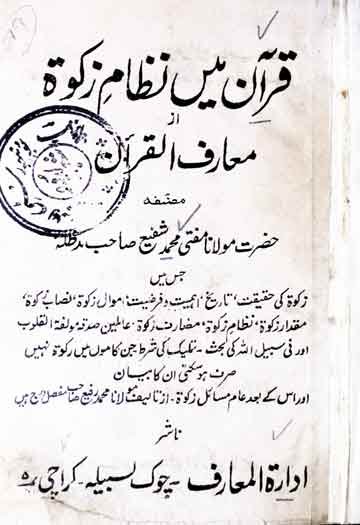 قرآن میں نظامِ زکوٰۃ
از
معارف القرآن
مصنفہ
حضرت مولانا مفتی محمد شفیع صاحب مدظلہٗ
جس میں
زکوٰۃ کی حقیقت، تاریخ، اہمیت و فرضیت، اموال زکوٰۃ، نصاب زکوٰۃ،
مقدار زکوٰۃ، نظام زکوٰۃ، مصارف زکوٰۃ، عاملین صدقہ، مولفۃ القلوب
اور فی سبیل اللہ کی بحث ۔ تملیک کی شرط جن کاموں میں زکوٰۃ نہیں
صرف ہو سکتی ان کا بیان
اور اس کے بعد عام مسائل زکوٰۃ ۔ از تالیف مولانا محمد رفیع صاحب مفصل درج ہیں
ناشر
ادارۃ المعارف ۔ چوک لسبیلہ ۔ کراچی نمبر ۵